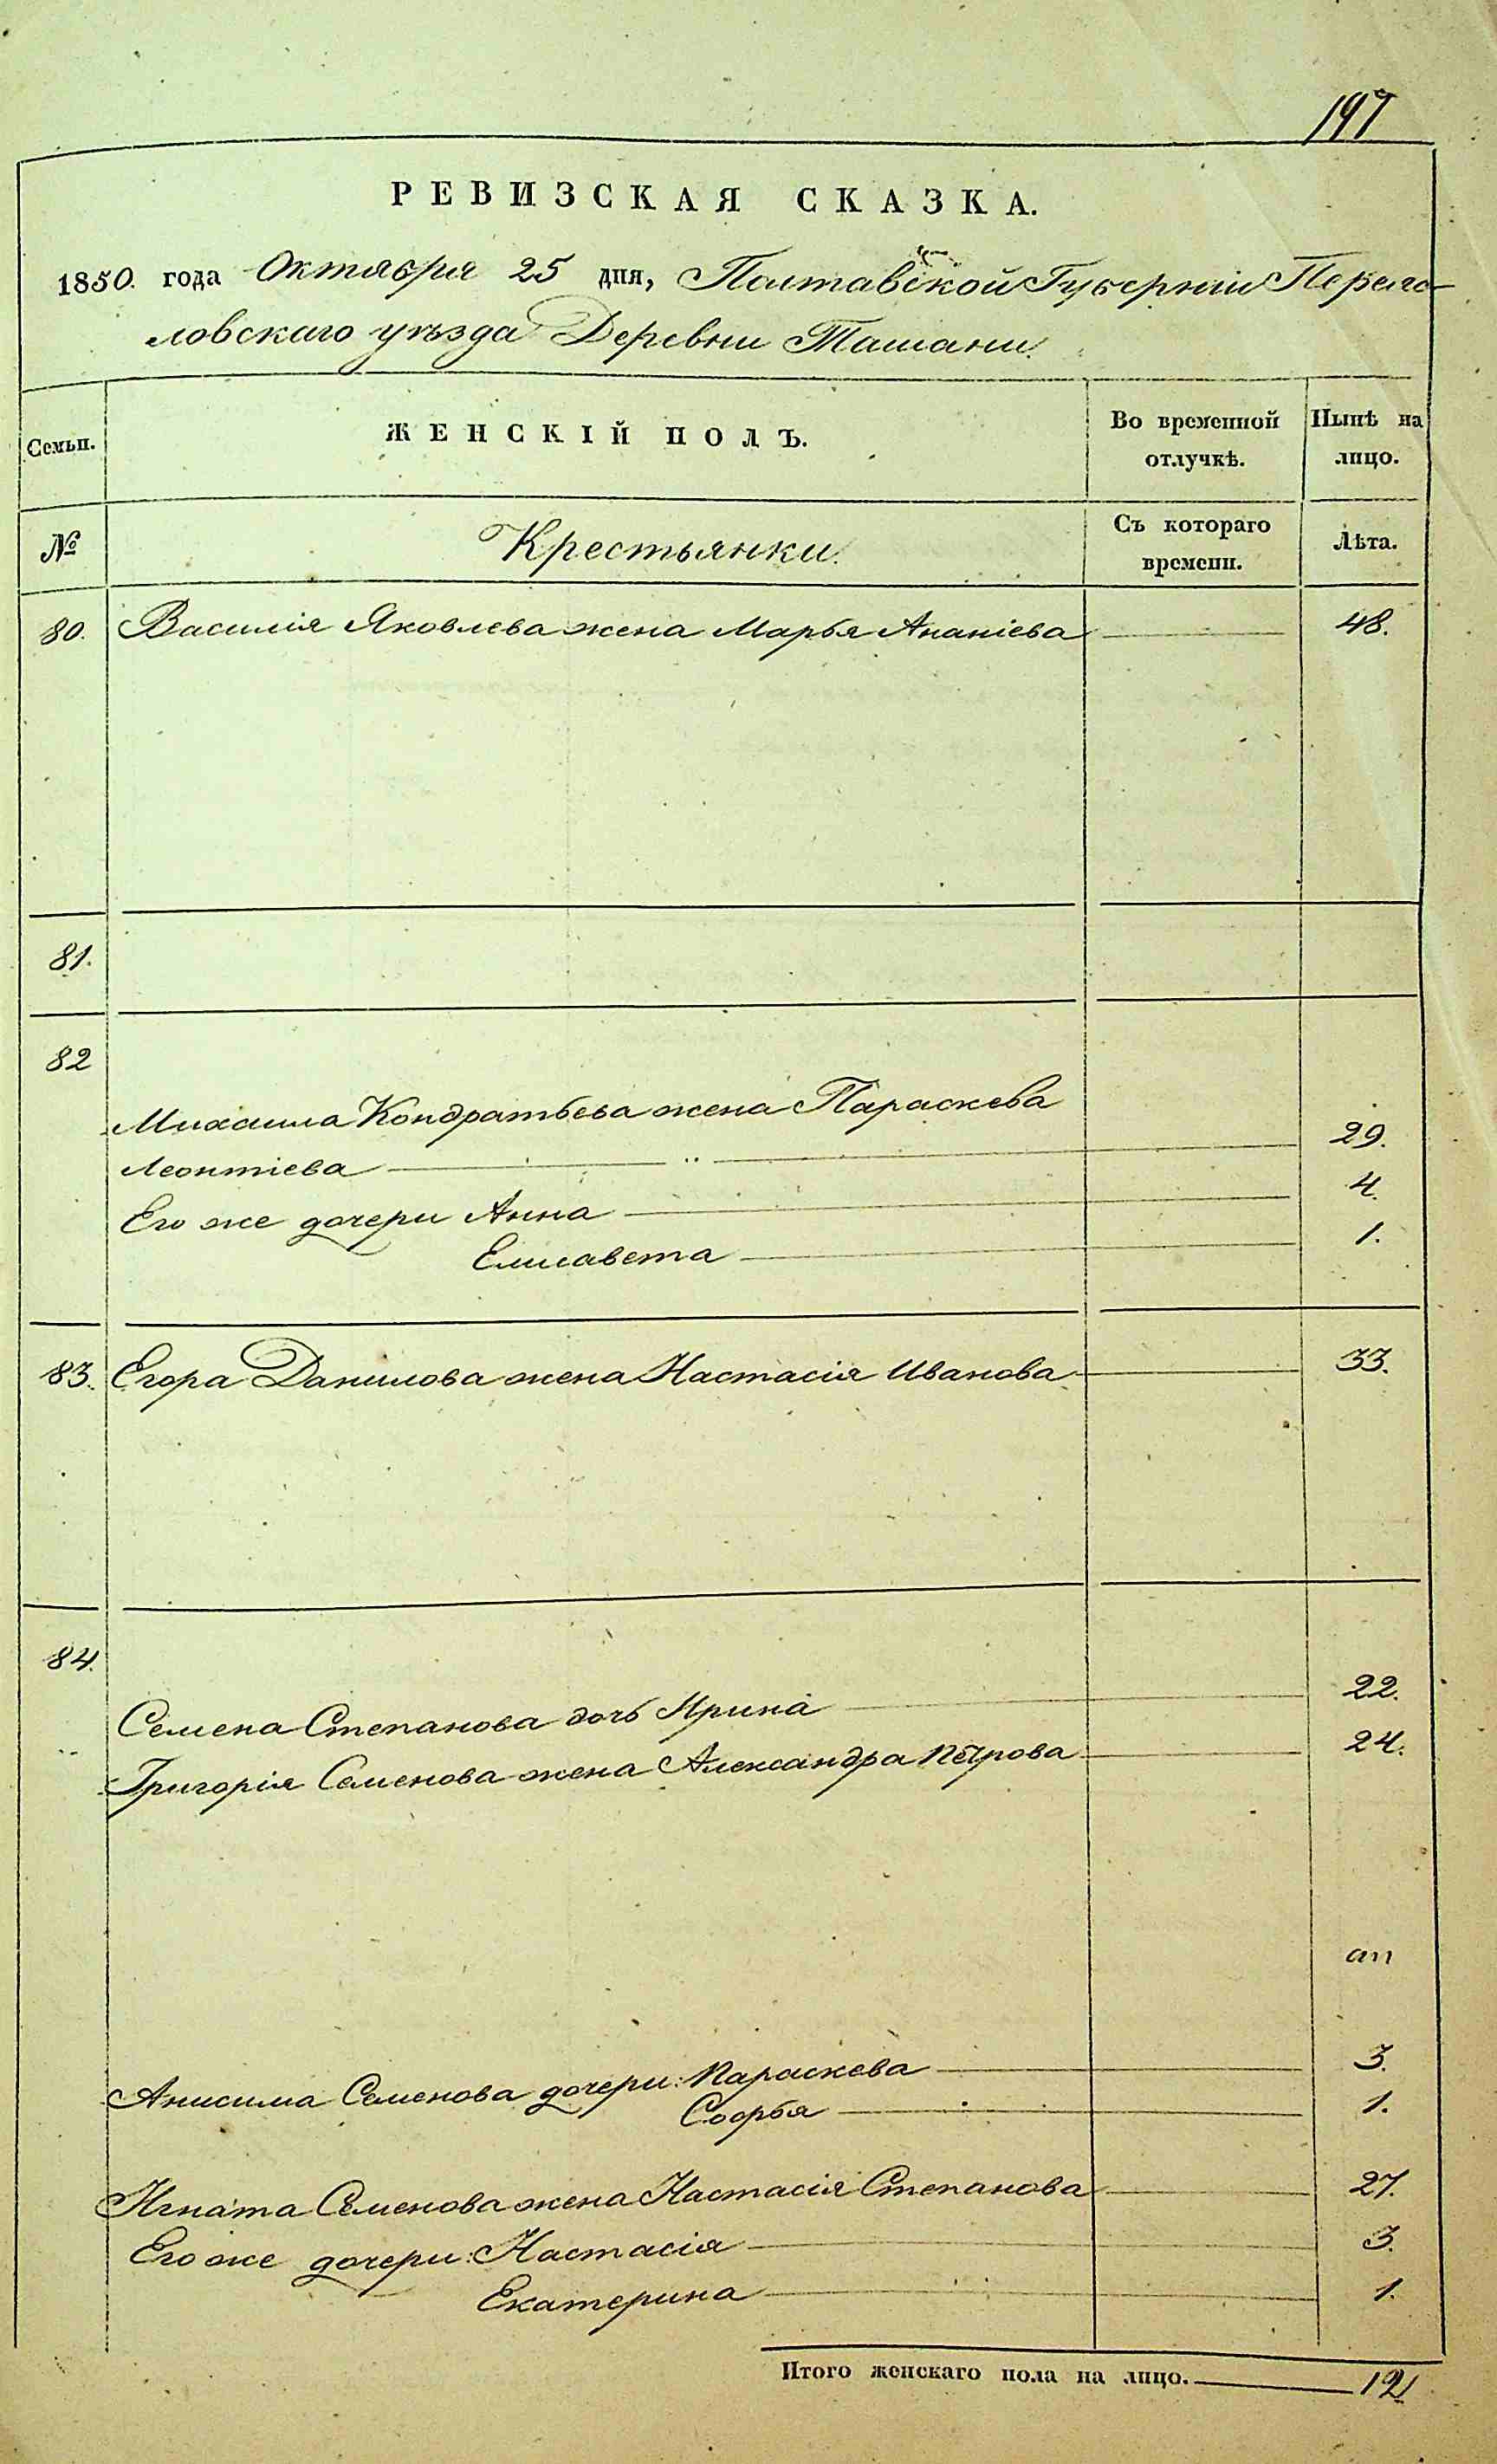 197
РЕВИЗСКАЯ СКАЗКА.
1850. года Октября 25 дня, Полтавской Губерніи Перело-
ловскаго уѣзда Деревни Ташани.
Семьи. ЖЕНСКІЙ ПОЛЪ. Во временной отлучкѣ. Нынѣ на лицо.
№ Крестьянки. Съ котораго времени. Лѣта.
80. Василія Яковлева жена Марья Ананіева 48.
81.
82
Михаила Кондратьева жена Параскева
Леонтіева 29.
Его же дочери Анна 4.
Елисавета 1.
83. Егора Данилова жена Настасія Иванова 33.
84.
Семена Степанова дочь Ирина 22.
Григорія Семенова жена Александра Петрова 24.
Анисима Семенова дочери: Параскева 3.
Софья 1.
Игната Семенова жена Настасія Степанова 27.
Его же дочери: Настасія 3.
Екатерина 1.
Итого женскаго пола на лицо. 12